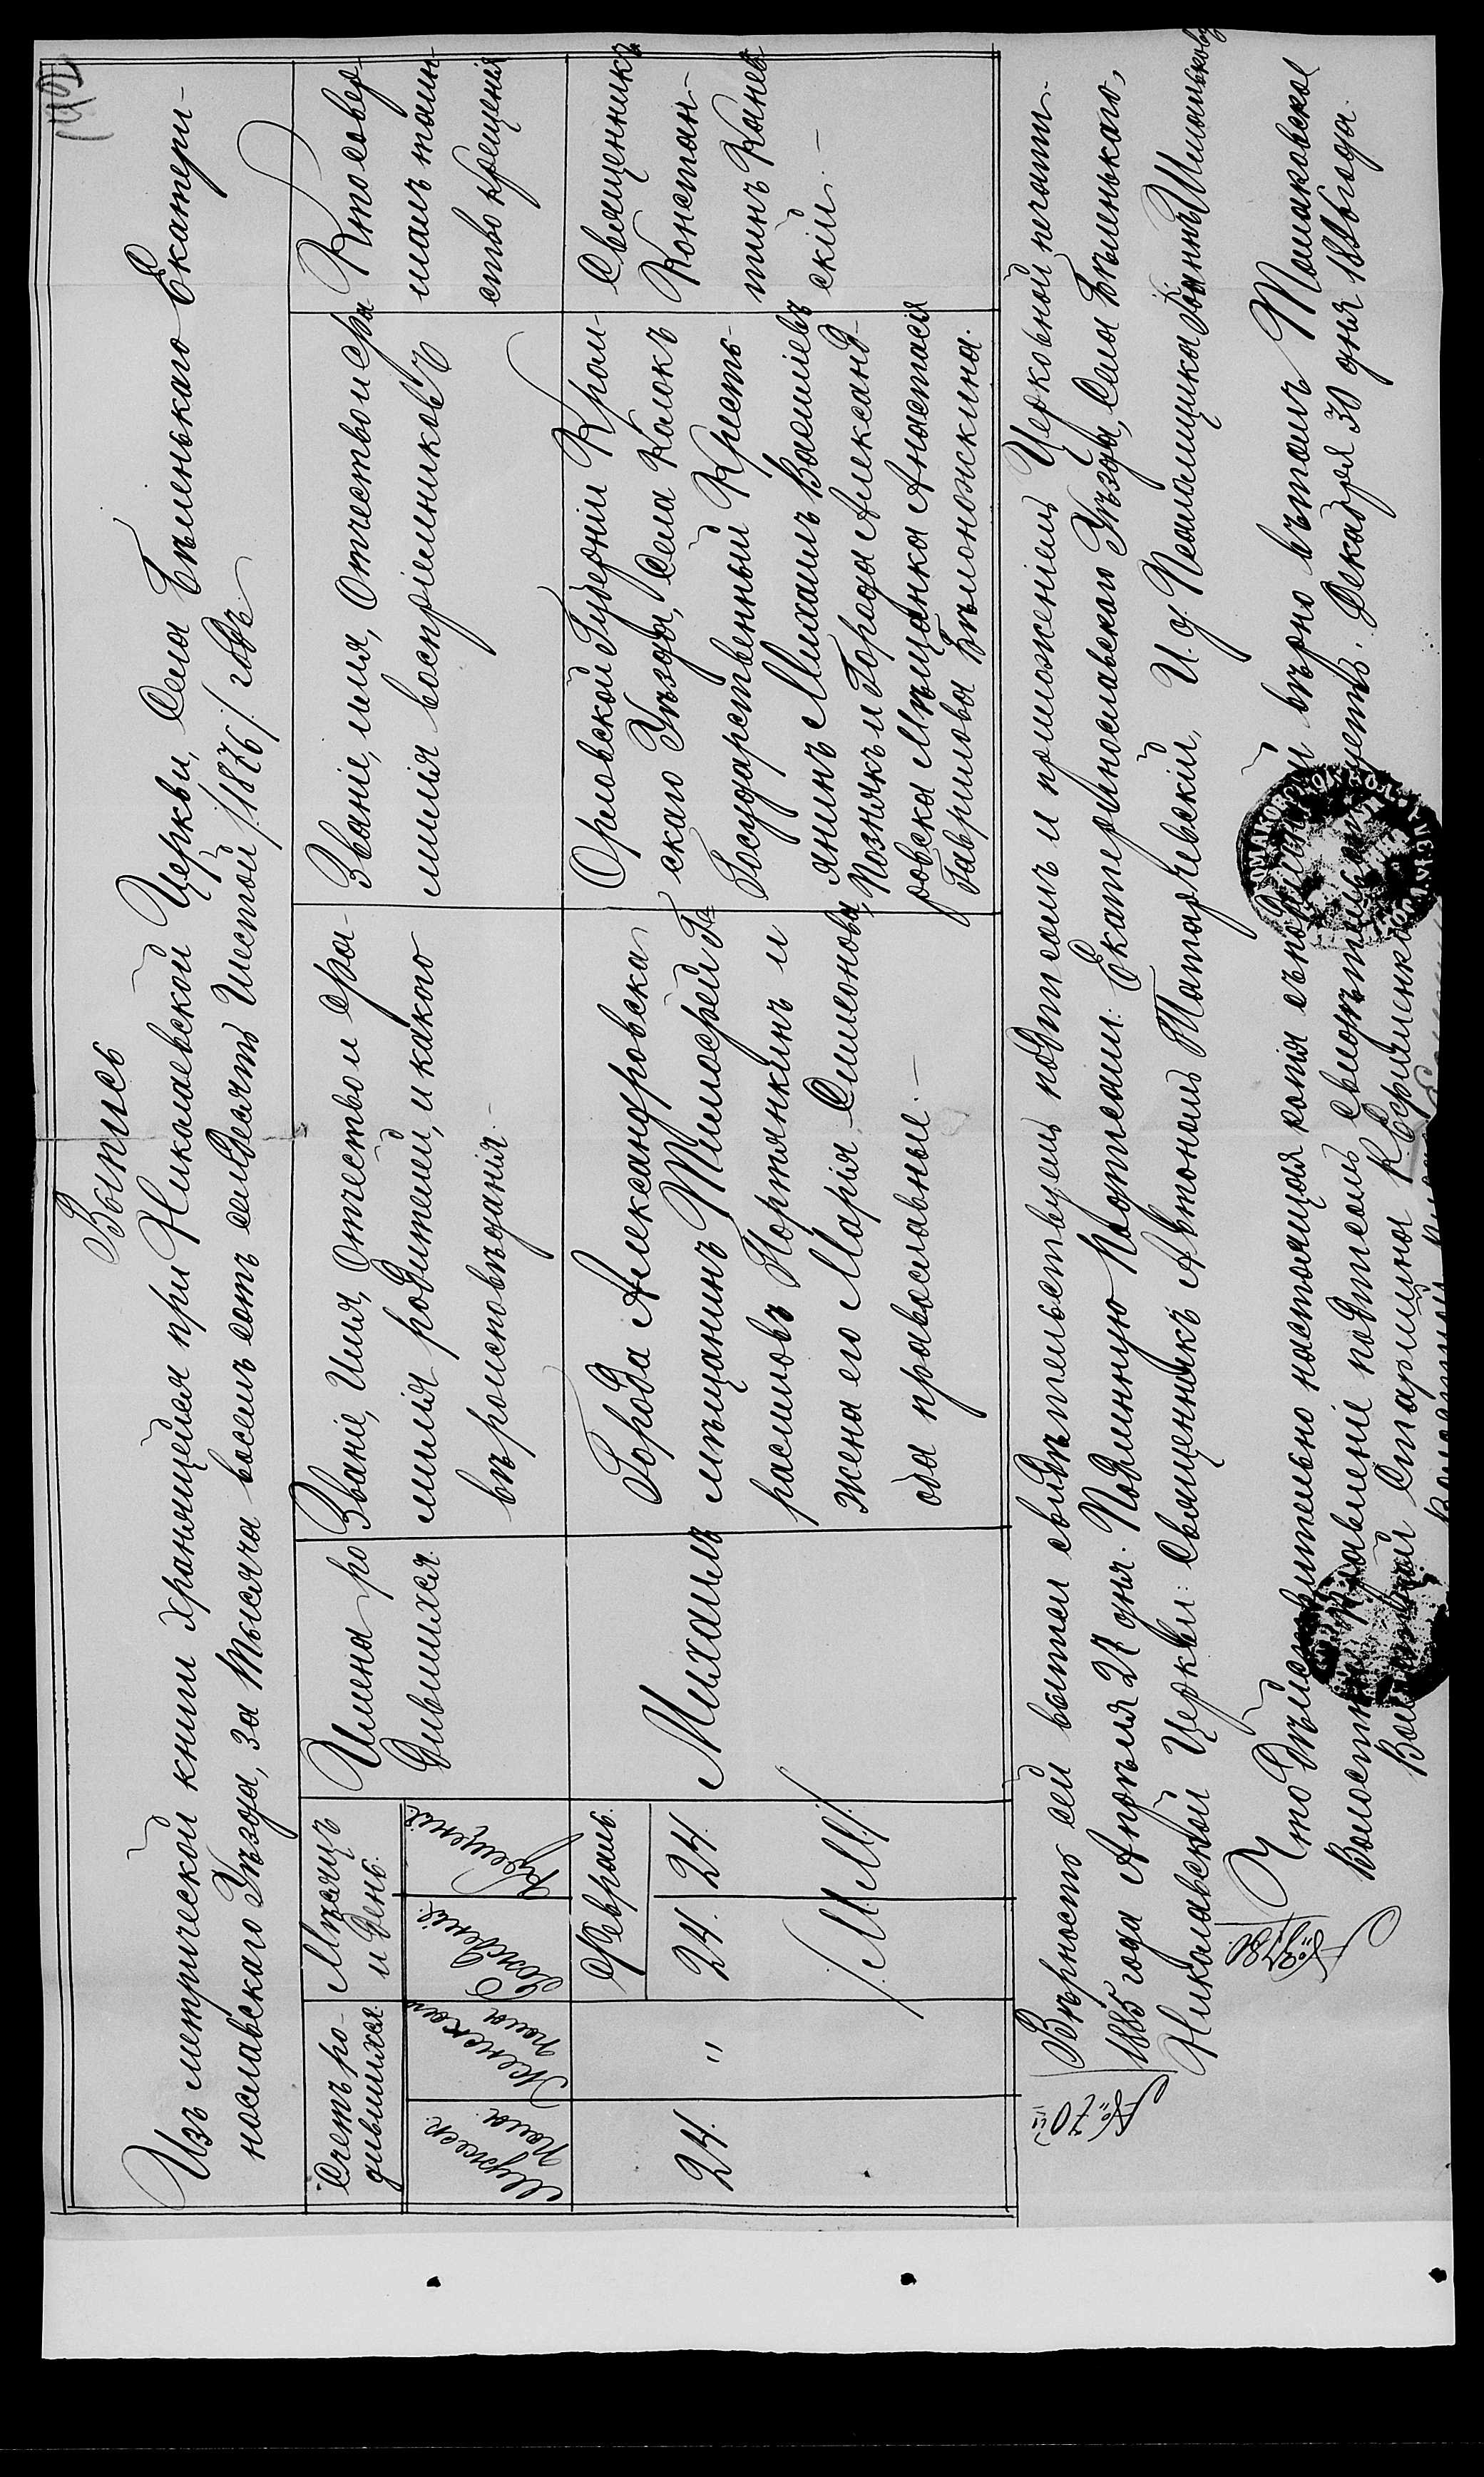 Выпись
Изъ метрической книги хранящейся при Николаевской Церкви, Села Бѣленькаго Екатери-
нославскаго Уѣзда, за тысяча восемь сотъ семдесятъ шестой /1876/ годъ.
Счетъ ро-
дившихся.
Мужеск. пола.
Женскаго пола
Мѣсяцъ
и день.
Рожденія.
Крещенія.
Имена ро
дившихся.
Званіе, Имя, Отчество и фа-
милія родителей, и какого
вѣроисповѣданія.
Званіе, имя, Отчество и фа
милія воспріемниковъ
Кто совер-
шалъ таин-
ство крещенія
24.
"
Февраль.
24. 24.
/М.М./
Михаилъ
Города Александровска
мѣщанинъ Тимофей Га
расимовъ Портянкинъ и
жена его Марія Симонова,
оба православные.—
Орловской Губерніи Кром-
скаго Уѣзда, Села Калокъ
Государственный Кресть-
янинъ Михаилъ Васильевъ
Познякъ и Города Александ-
ровска Мѣщанка Анастасія
Гаврилова Бѣлоножкина.
Священникъ
Констан-
тинъ Канев
скій.—
Вѣрность сей выписи свидѣтельствуемъ подписомъ и приложеніемъ Церковной печати.
1885 года Апрѣля 22 дня. Подлинную подписали: Екатеринославскаго Уѣзда, Села Бѣленькаго,
№ 70
Николаевской Церкви: Священникъ Автономъ Татарчевскій, И. д. Псаломщика Іоаннъ Шиманьковъ
Что дѣйствительно настоящая копія съ подлинной вѣрно въ томъ Томаковское
№ 3780.
Волостное Правленіе подписомъ свидѣтельствуетъ. Декабря 30 дня 1886 года.
Волостной Старшина К. Ефименко